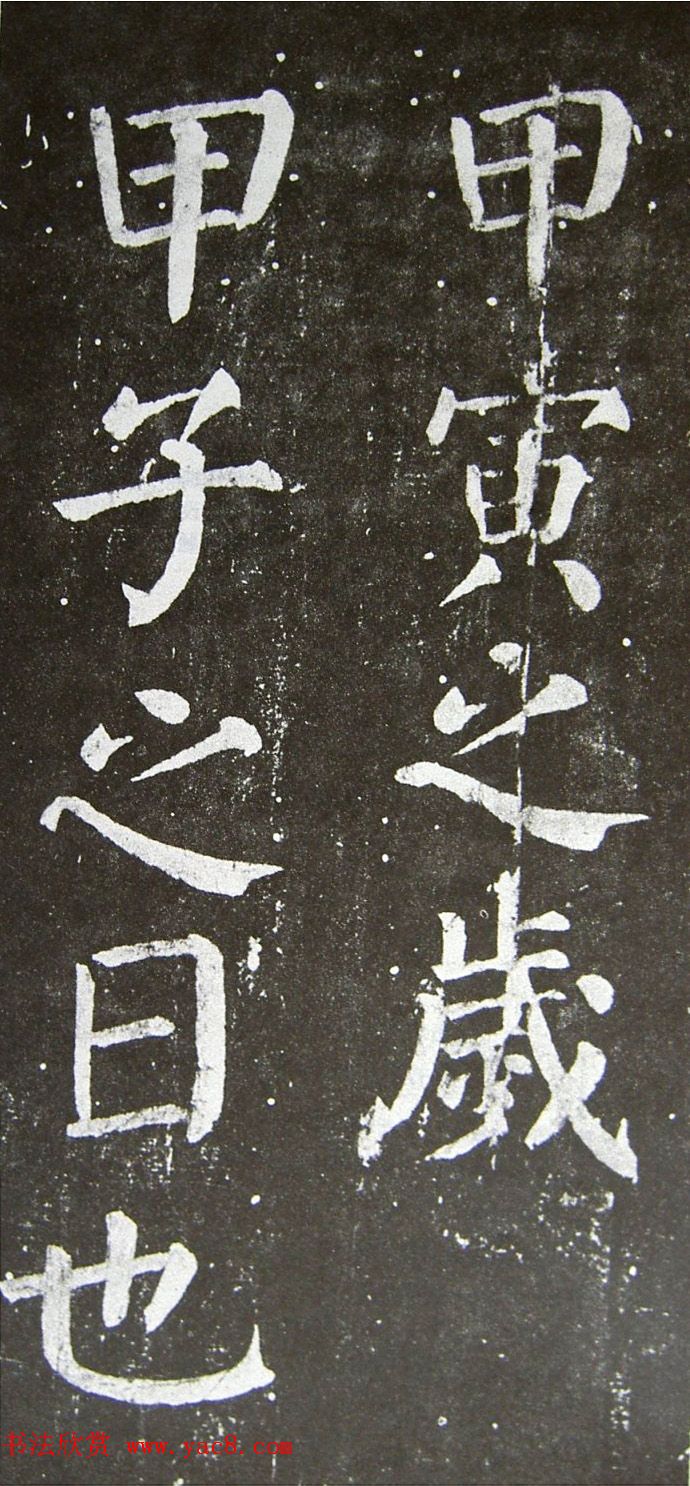 甲寅之歲
甲子之日也
书法欣赏 www.yac8.com